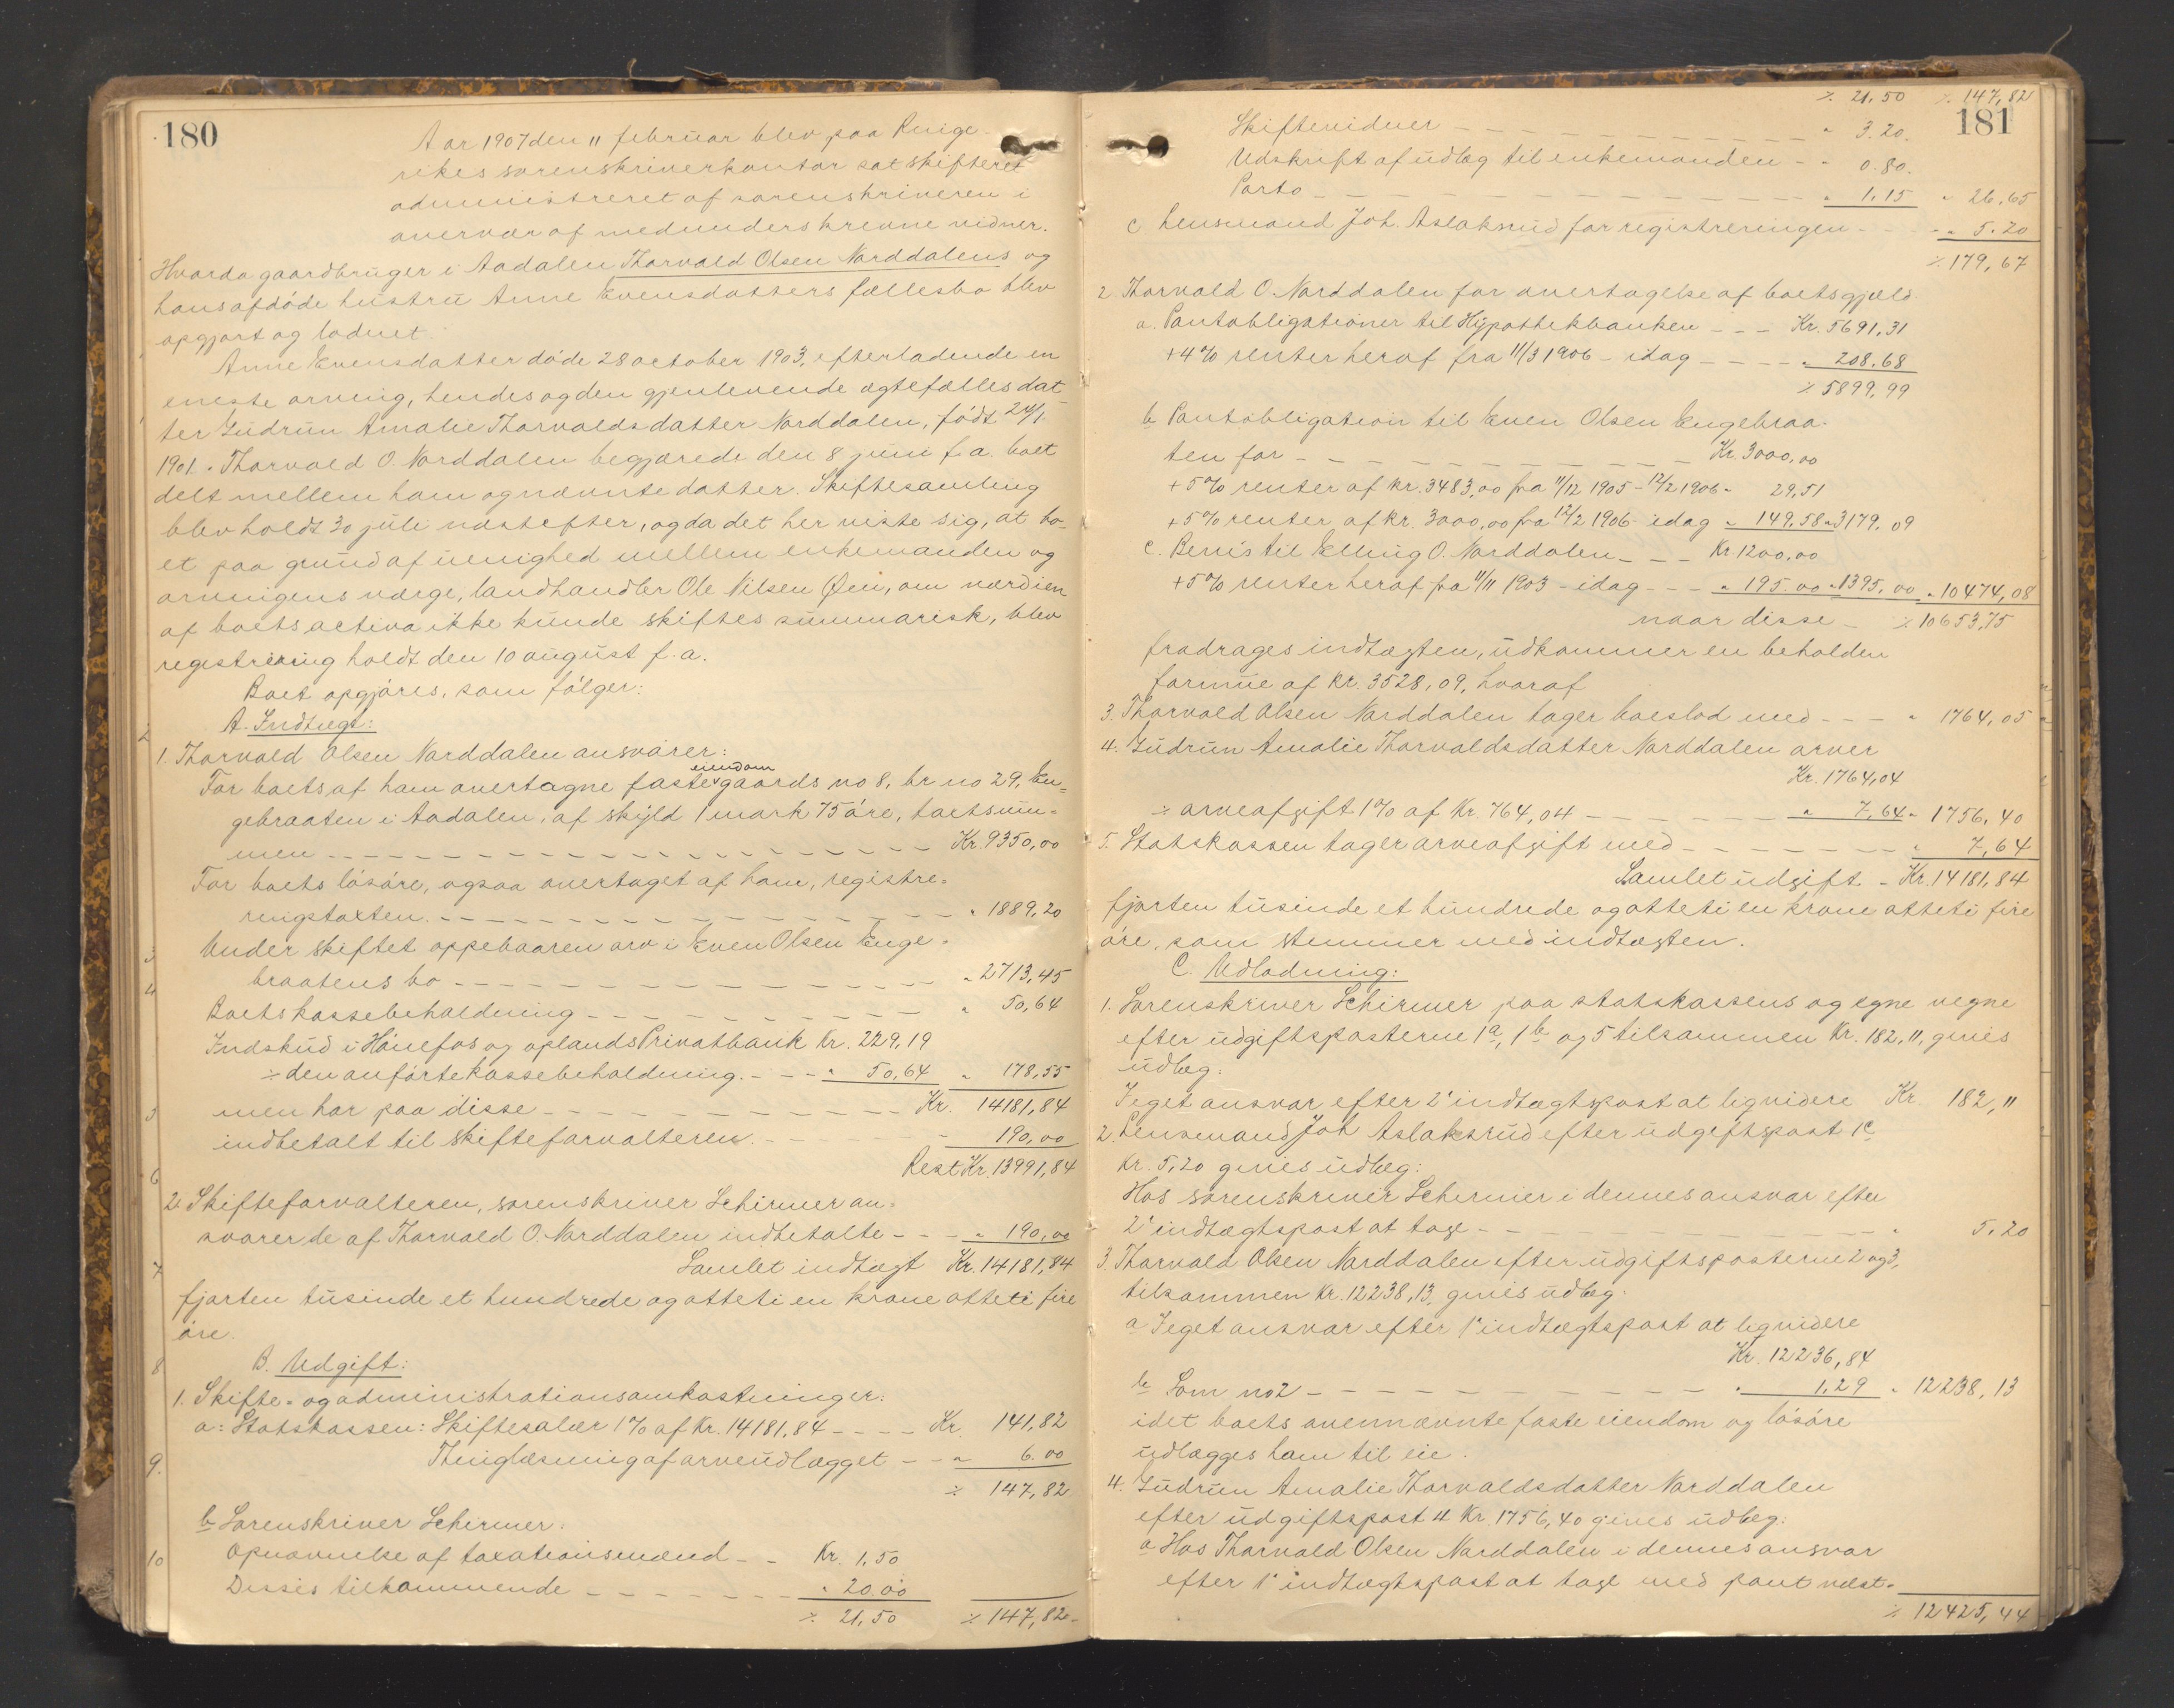 180
Aar 1907 den 11 februar blev paa Ringe-
rikes sorenskriverkontor sat skifteret
administreret af sorenskriveren i
overvær af medunderskrevne vidner.
Hvorda gaardbruger i Aadalen Thorvald Olsen Norddalens og
hans afdøde hustru Anne Evensdatters fællesbo blev
opgjort og lodnet.
Anne Evensdatter døde 28 october 1903, efterladende en
eneste arving, hendes og den gjenlevende ægtefælles dat-
ter Gudrun Amalie Thorvaldsdatter Norddalen, født 24/1
1901. Thorvald O. Norddalen begjærede den 8 juni f. a. boet
delt mellem ham og nævnte datter. Skiftesamling
blev holdt 30 juli næstefter, og da det her viste sig, at bo-
et paa grund af uenighed mellem enkemanden og
arvingens værge, landhandler Ole Nilsen Øen, om værdien
af boets activa ikke kunde skiftes summarisk, blev
registrering holdt den 10 august f. a.
Boet opgjøres, som følger:
A. Indtægt:
1. Thorvald Olsen Norddalen ansvarer:
For boets af ham overtagne faste eiendom gaards no 8, br. no 29, En=
gebraaten i Aadalen, af skyld 1 mark 75 øre, boetssum=
men Kr. 9350,00
For boets løsøre, ogsaa overtaget af ham, registre=
ringstaxten " 1889,20
Under skiftet oppebaaren arv i Even Olsen Enge=
braatens bo " 2713,45
Boets kassebeholdning " 50,64
Indskud i Hønefos og oplands Privatbank Kr. 229,19
÷ den anførte kassebeholdning " 50,64 " 178,55
Kr. 14181,84
men har paa disse
indbetalt til skifteforvalteren 190,00
Rest Kr. 13991,84
2. Skifteforvalteren, sorenskriver Schirmer an=
svarer de af Thorvald O. Norddalen indbetalte " 190,00
Samlet indtægt Kr. 14181,84
fjorten tusinde et hundrede og otteti en krone otteti fire
øre.
B. Udgift:
1. Skifte- og administrationsomkostninger:
a: Statskassen: Skiftesalær 1% af Kr. 14181,84 Kr. 141,82
Thinglæsning af arveudlægget " 6.00
÷ 147,82
b Sorenskriver Schirmer:
Opnævnelse af taxationsmænd Kr. 1,50
Disses tilkommende " 20.00
÷ 21,50 ÷ 147,82
÷ 21,50 ÷ 147,82
181
Skiftevidner " 3.20.
Udskrift af udlæg til enkemanden " 0.80.
Porto " 1.15 " 26,65
c Lensmand Joh. Aslaksrud for registreringen " 5.20
÷ 179,67
2 Thorvald O. Norddalen for overtagelse af boets gjæld
a. Pantobligationer til Hypothekbanken Kr. 5691,31
+ 4% renter heraf fra 11/3 1906 - idag " 208.68
÷ 5899,99
b Pantobligation til Even Olsen Engebraa-
ten for Kr. 3000,00
+ 5% renter af kr. 3483,00 fra 11/12 1905 - 12/2 1906 " 29,51
+ 5% renter af kr. 3000,00 fra 12/2 1906 idag " 149,58 " 3179,09
c. Bevis til Elling O. Norddalen Kr 1200,00
+ 5% renter heraf fra 11/11 1903 - idag " 195.00 " 1395,00 " 10474,08
naar disse ÷ 10653,75
fradrages indtægten, udkommer en beholden
formue af kr. 3528,09, hvoraf
3. Thorvald Olsen Norddalen tager boeslod med " 1764,05
4. Gudrun Amalie Thorvaldsdatter Norddalen arver
Kr. 1764,04
÷ arveafgift 1% af Kr. 764,04 " 7,64 " 1756,40
5. Statskassen tager arveafgift med " 7,64
Samlet udgift Kr. 14181,84
fjorten tusinde et hundrede og otteti en krone otteti fire
øre, som stemmer med indtægten.
C. Udlodning:
1. Sorenskriver Schirmer paa statskassens og egne vegne
efter udgiftsposterne 1a, 1b og 5 tilsammen Kr. 182,11, gives
udlæg:
I eget ansvar efter 2' indtægtspost at liqvidere Kr. 182,11
2. Lensmand Joh Aslaksrud efter udgiftspost 1c
kr. 5,20 gives udlæg:
Hos sorenskriver Schirmer i dennes ansvar efter
2' indtægtspost at tage " 5.20
3. Thorvald Olsen Norddalen efter udgiftsposterne 2 og 3,
tilsammen Kr. 12238,13, gives udlæg:
a I eget ansvar efter 1' indtægtspost at liqvidere
Kr. 12236,84
b Som no 2 " 1,29 " 12238,13
idet boets ovennævnte faste eiendom og løsøre
udlægges ham til eie.
4. Gudrun Amalie Thorvaldsdatter Norddalen
efter udgiftspost 4 Kr. 1756,40 gives udlæg:
a Hos Thorvald Olsen Norddalen i dennes ansvar
efter 1' indtægtspost at tage med pant næst-
÷ 12425,44